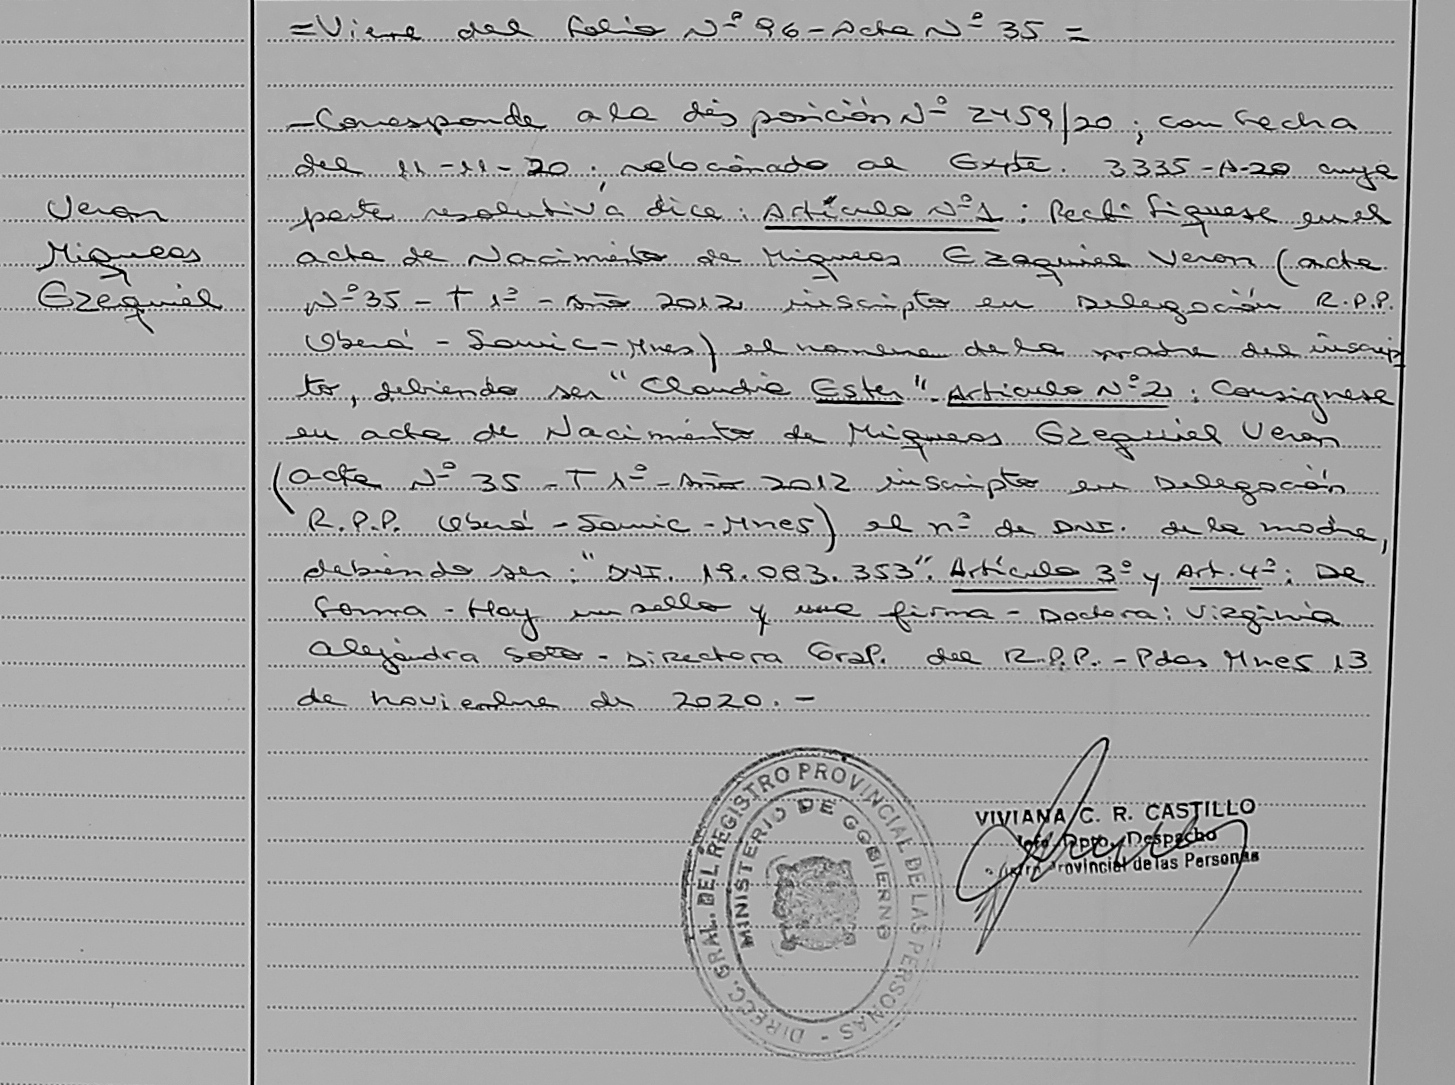 =Viene del folio Nº 96-Acta Nº 35=
-Corresponde a la disposición Nº 2459/20; con fecha
del 11-11-20, relacionado al Expte. 3335-A-20 cuya
parte resolutiva dice: Artículo Nº1: Rectifiquese en el
acta de Nacimiento de Miqueas Ezequiel Veron (acta
Nº 35-T 1º-Año 2012 inscripto en Delegación R.P.P.
Oberá-Samic-Mnes) el nombre de la madre del inscrip
to, debiendo ser "Claudia Ester". Artículo Nº2: Consignese
en acta de Nacimiento de Miqueas Ezequiel Veron
(acta Nº 35-T 1º-Año 2012 inscripto en Delegación
R.P.P. Oberá-Samic-Mnes) el nº de DNI. de la madre,
debiendo ser: "DNI. 19.083.353". Artículo 3º y Art. 4º: De
forma-Hay un sello y una firma-Doctora: Virginia
Alejandra Soto-Directora Gral. del R.P.P.-Pdas Mnes 13
de noviembre de 2020.-
Veron
Miqueas
Ezequiel
DIRECC. GRAL. DEL REGISTRO PROVINCIAL DE LAS PERSONAS -
MINISTERIO DE GOBIERNO
VIVIANA C. R. CASTILLO
Jefe Dpto. Despacho
Provincial de las Personas